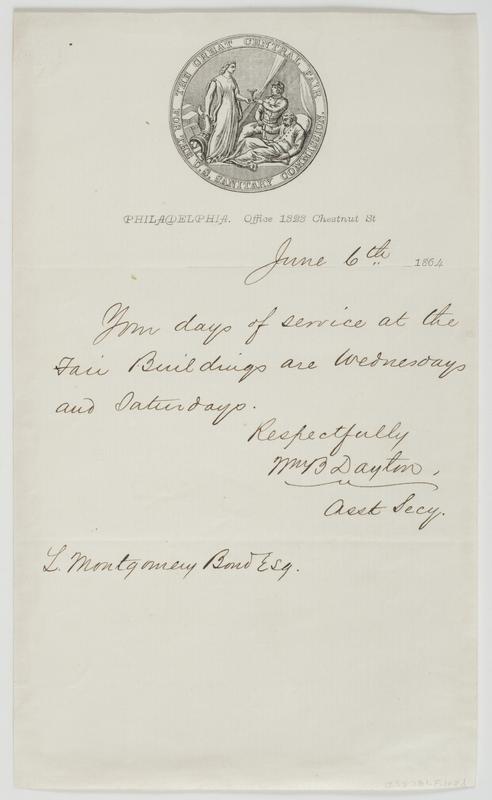 THE GREAT CENTRAL FAIR
FOR THE U.S. SANITARY COMMISSION.
PHILADELPHIA. Office 1323 Chestnut St
June 6th 1864
Your days of service at the
Fair Buildings are Wednesdays
and Saturdays.
Respectfully
Wm B Dayton,
Asst Secy.
L. Montgomery Bond Esq.